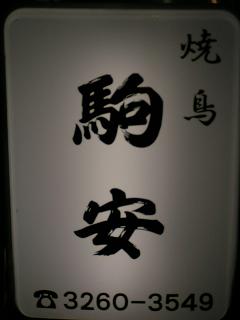 焼鳥
駒安
☎3260-3549